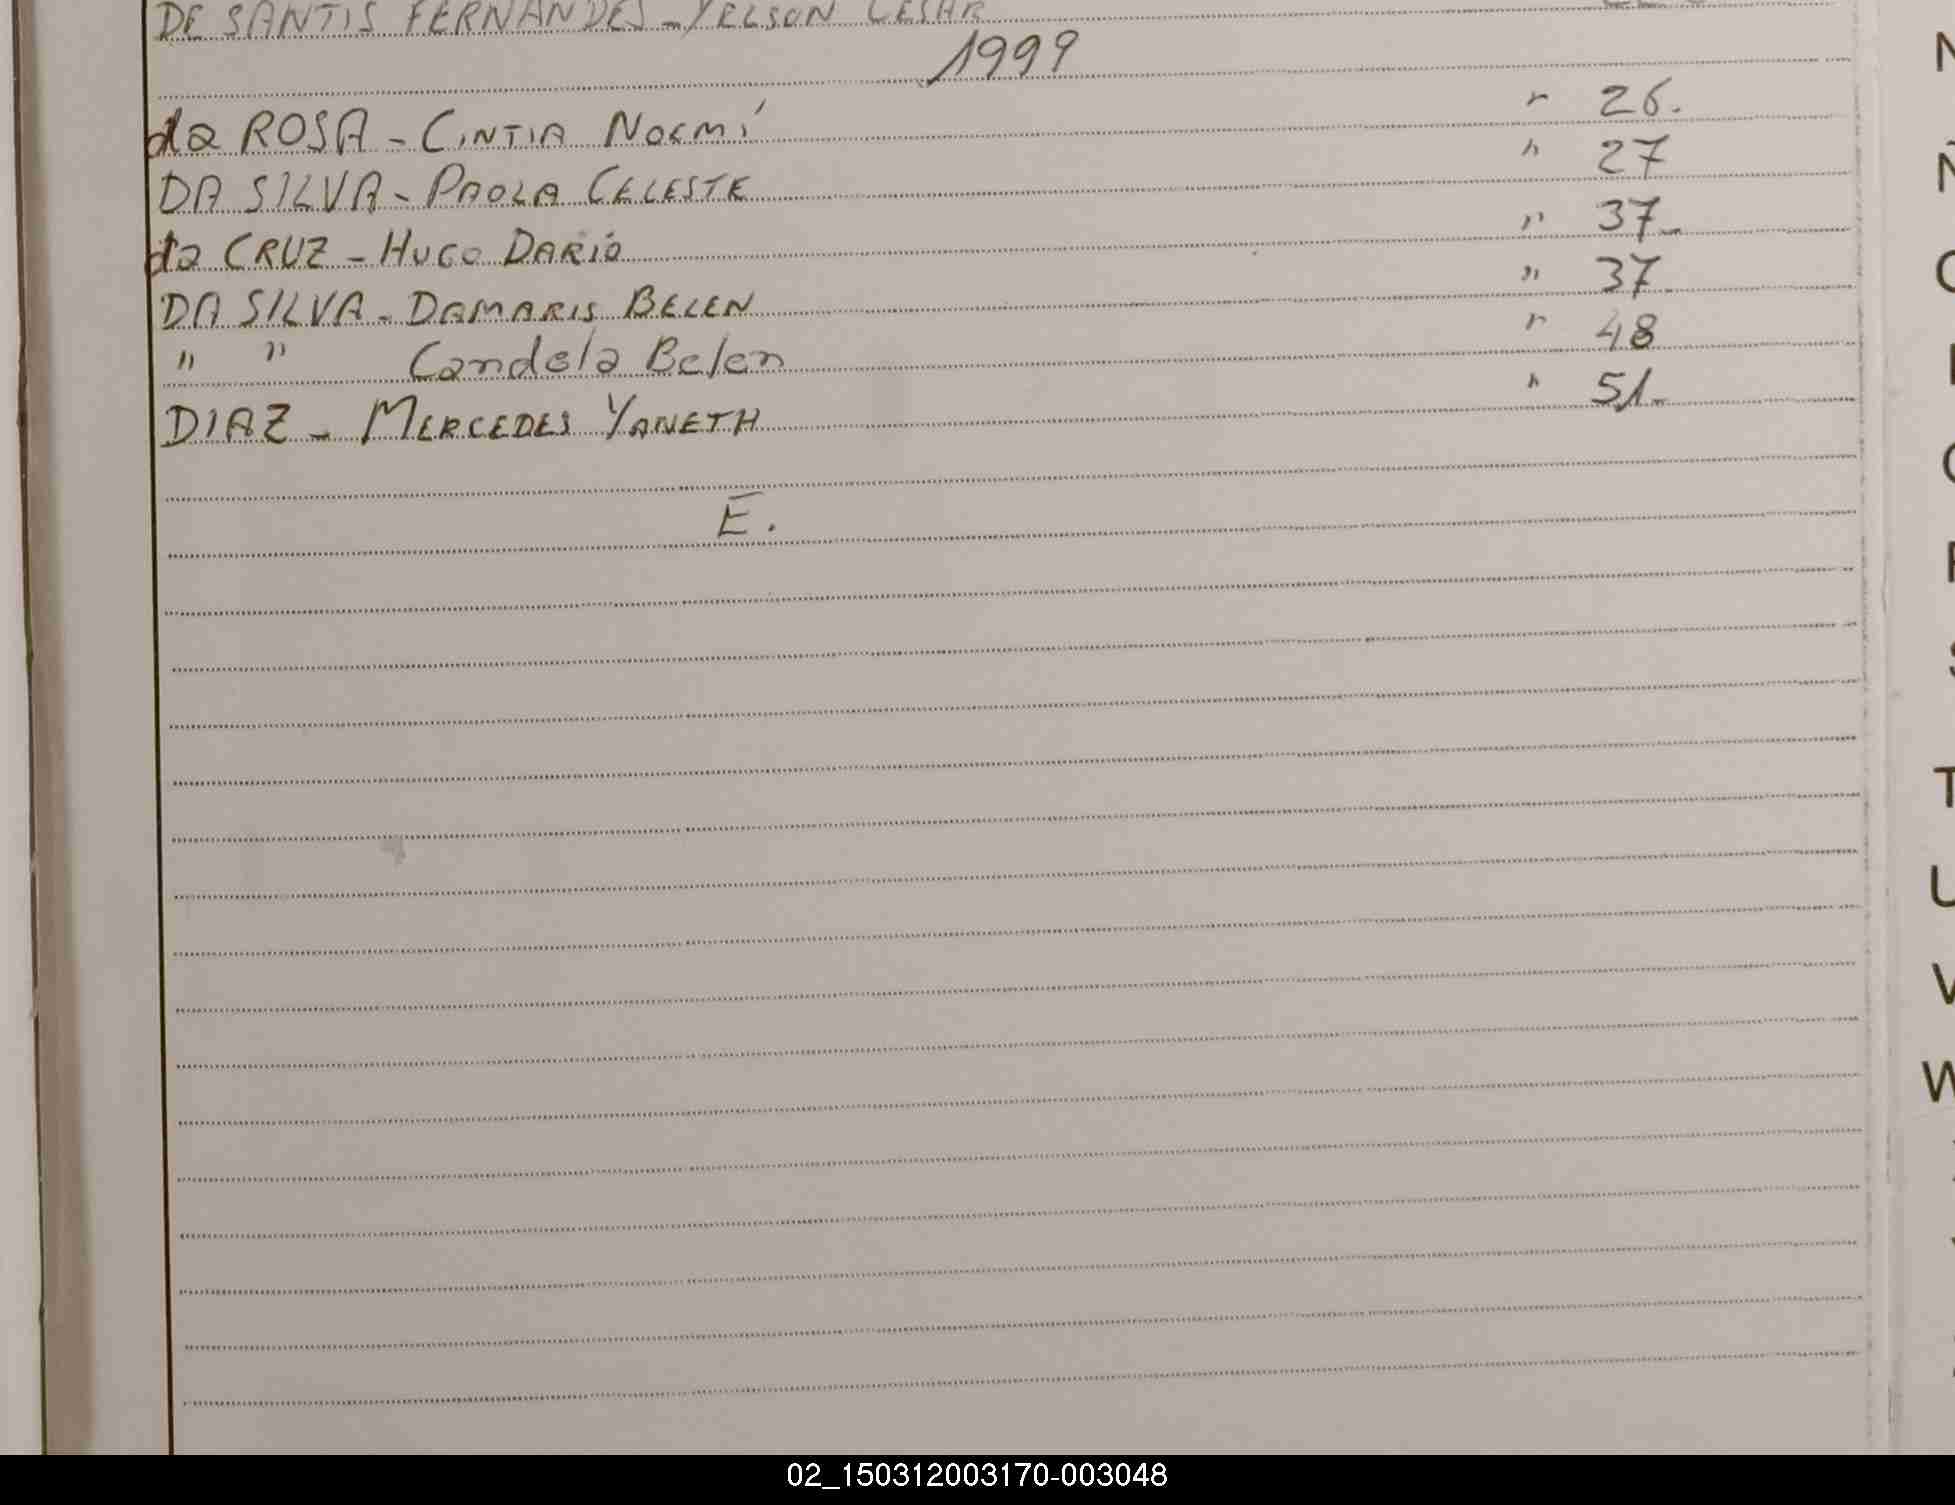 DE SANTIS FERNANDES - YELSON CESAR
1999
da ROSA - CINTIA NOEMÍ " 26.
DA SILVA - PAOLA CELESTE " 27
da CRUZ - HUGO DARIO " 37-
DA SILVA - DAMARIS BELEN " 37.
" " Candela Belen " 48
DIAZ - MERCEDES YANETH " 51-
E.
T
U
V
W
02_150312003170-003048